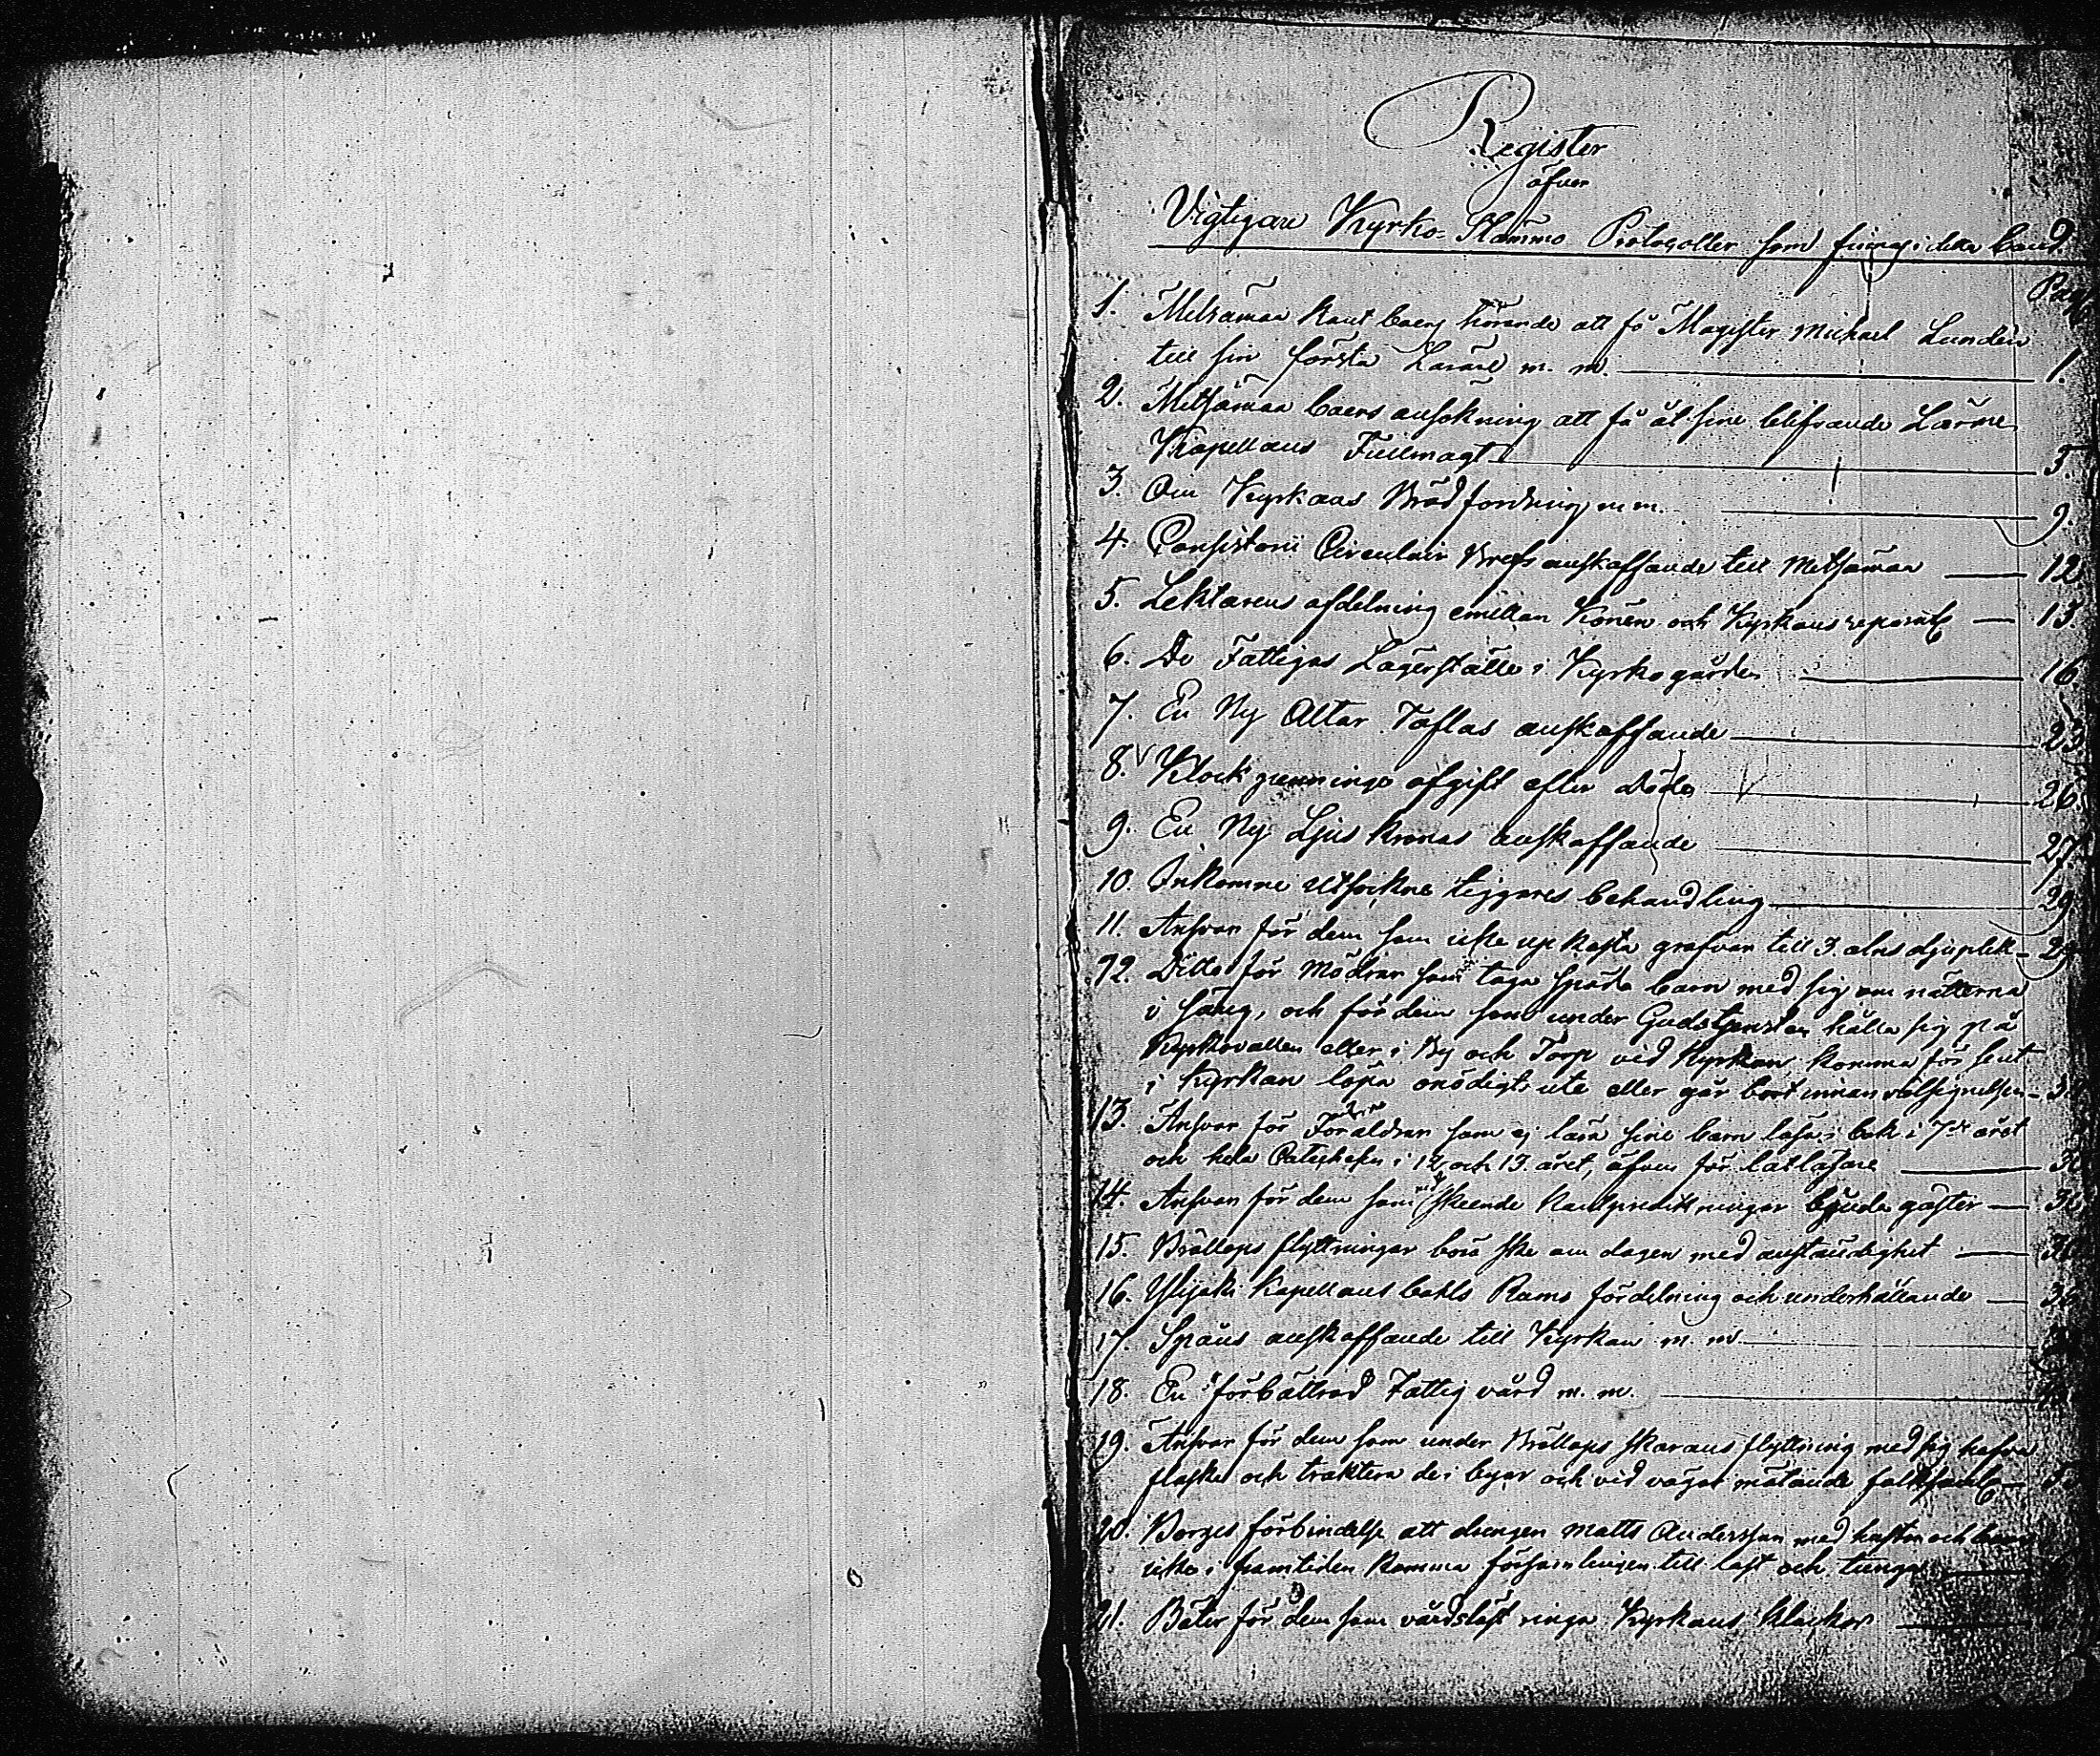 Register
öfver
Vigtigare Kyrko-Stämmo Protocoller som finnas i detta band
Pag.
1. Metsämaa hörande att få Magister Michael Lundén
till sin första Lärare m. m. 1.
2. Metsämaa boers ansökning att få åt sine blifvande Lärare
Kapellans Fullmagt 5.
3. Om Kyrkans m m. 9.
4. Consistorii Circulair Brefs anskaffande till Metsämaa 12
5. Lektarens afdelning emillan Könen och Kyrkans reparat 13.
6. De Fattigas Lägerställe i Kyrkogården 16
7. En Ny Altar Taflas anskaffande 23
8. Klock ringnings afgift efter döde 26
9. En Ny Ljus Kronas anskaffande 27
10. Inkomne utsockne tiggares behandling 29
11. Ansvar för dem som icke upkasta grafvar till 3 alns djuplek 29
12. Ditto för Mödrar som taga späda barn med sig om nätterna
i säng, och för dem som under Gudstjensten hålla sig på
Kyrkovallen eller i By och Torp vid Kyrkan, komma för sent
i Kyrkan löpa onödigt ute eller går bort innan välsignelsen
13. Ansvar för Föräldrar som ej lära sine barn läsa i bok i 7de året
och hela Catechesen i 12 och 13 året, äfven för lat läsare
14. Ansvar för dem som skeende bjuda gäster
15. Bröllops flyttningar böra ske om dagen med anständighet
16. Ypäjoki Kapellans bohls fördelning och underhållande 36
17. Spåns anskaffande till Kyrkan m. m.
18. En förbättrad Fattig vård m. m.
19. Ansvar för dem som under Bröllops skarans flyttning med sig hafva
flaska och traktera de i byar och vid vägar mötande
20. Borges förbindelse att drengen Matts Andersson med hustru och
icke i framtiden komma församlingen till last och tunga
21. Böter för dem som vårdslöst ringa Kyrkans klockor